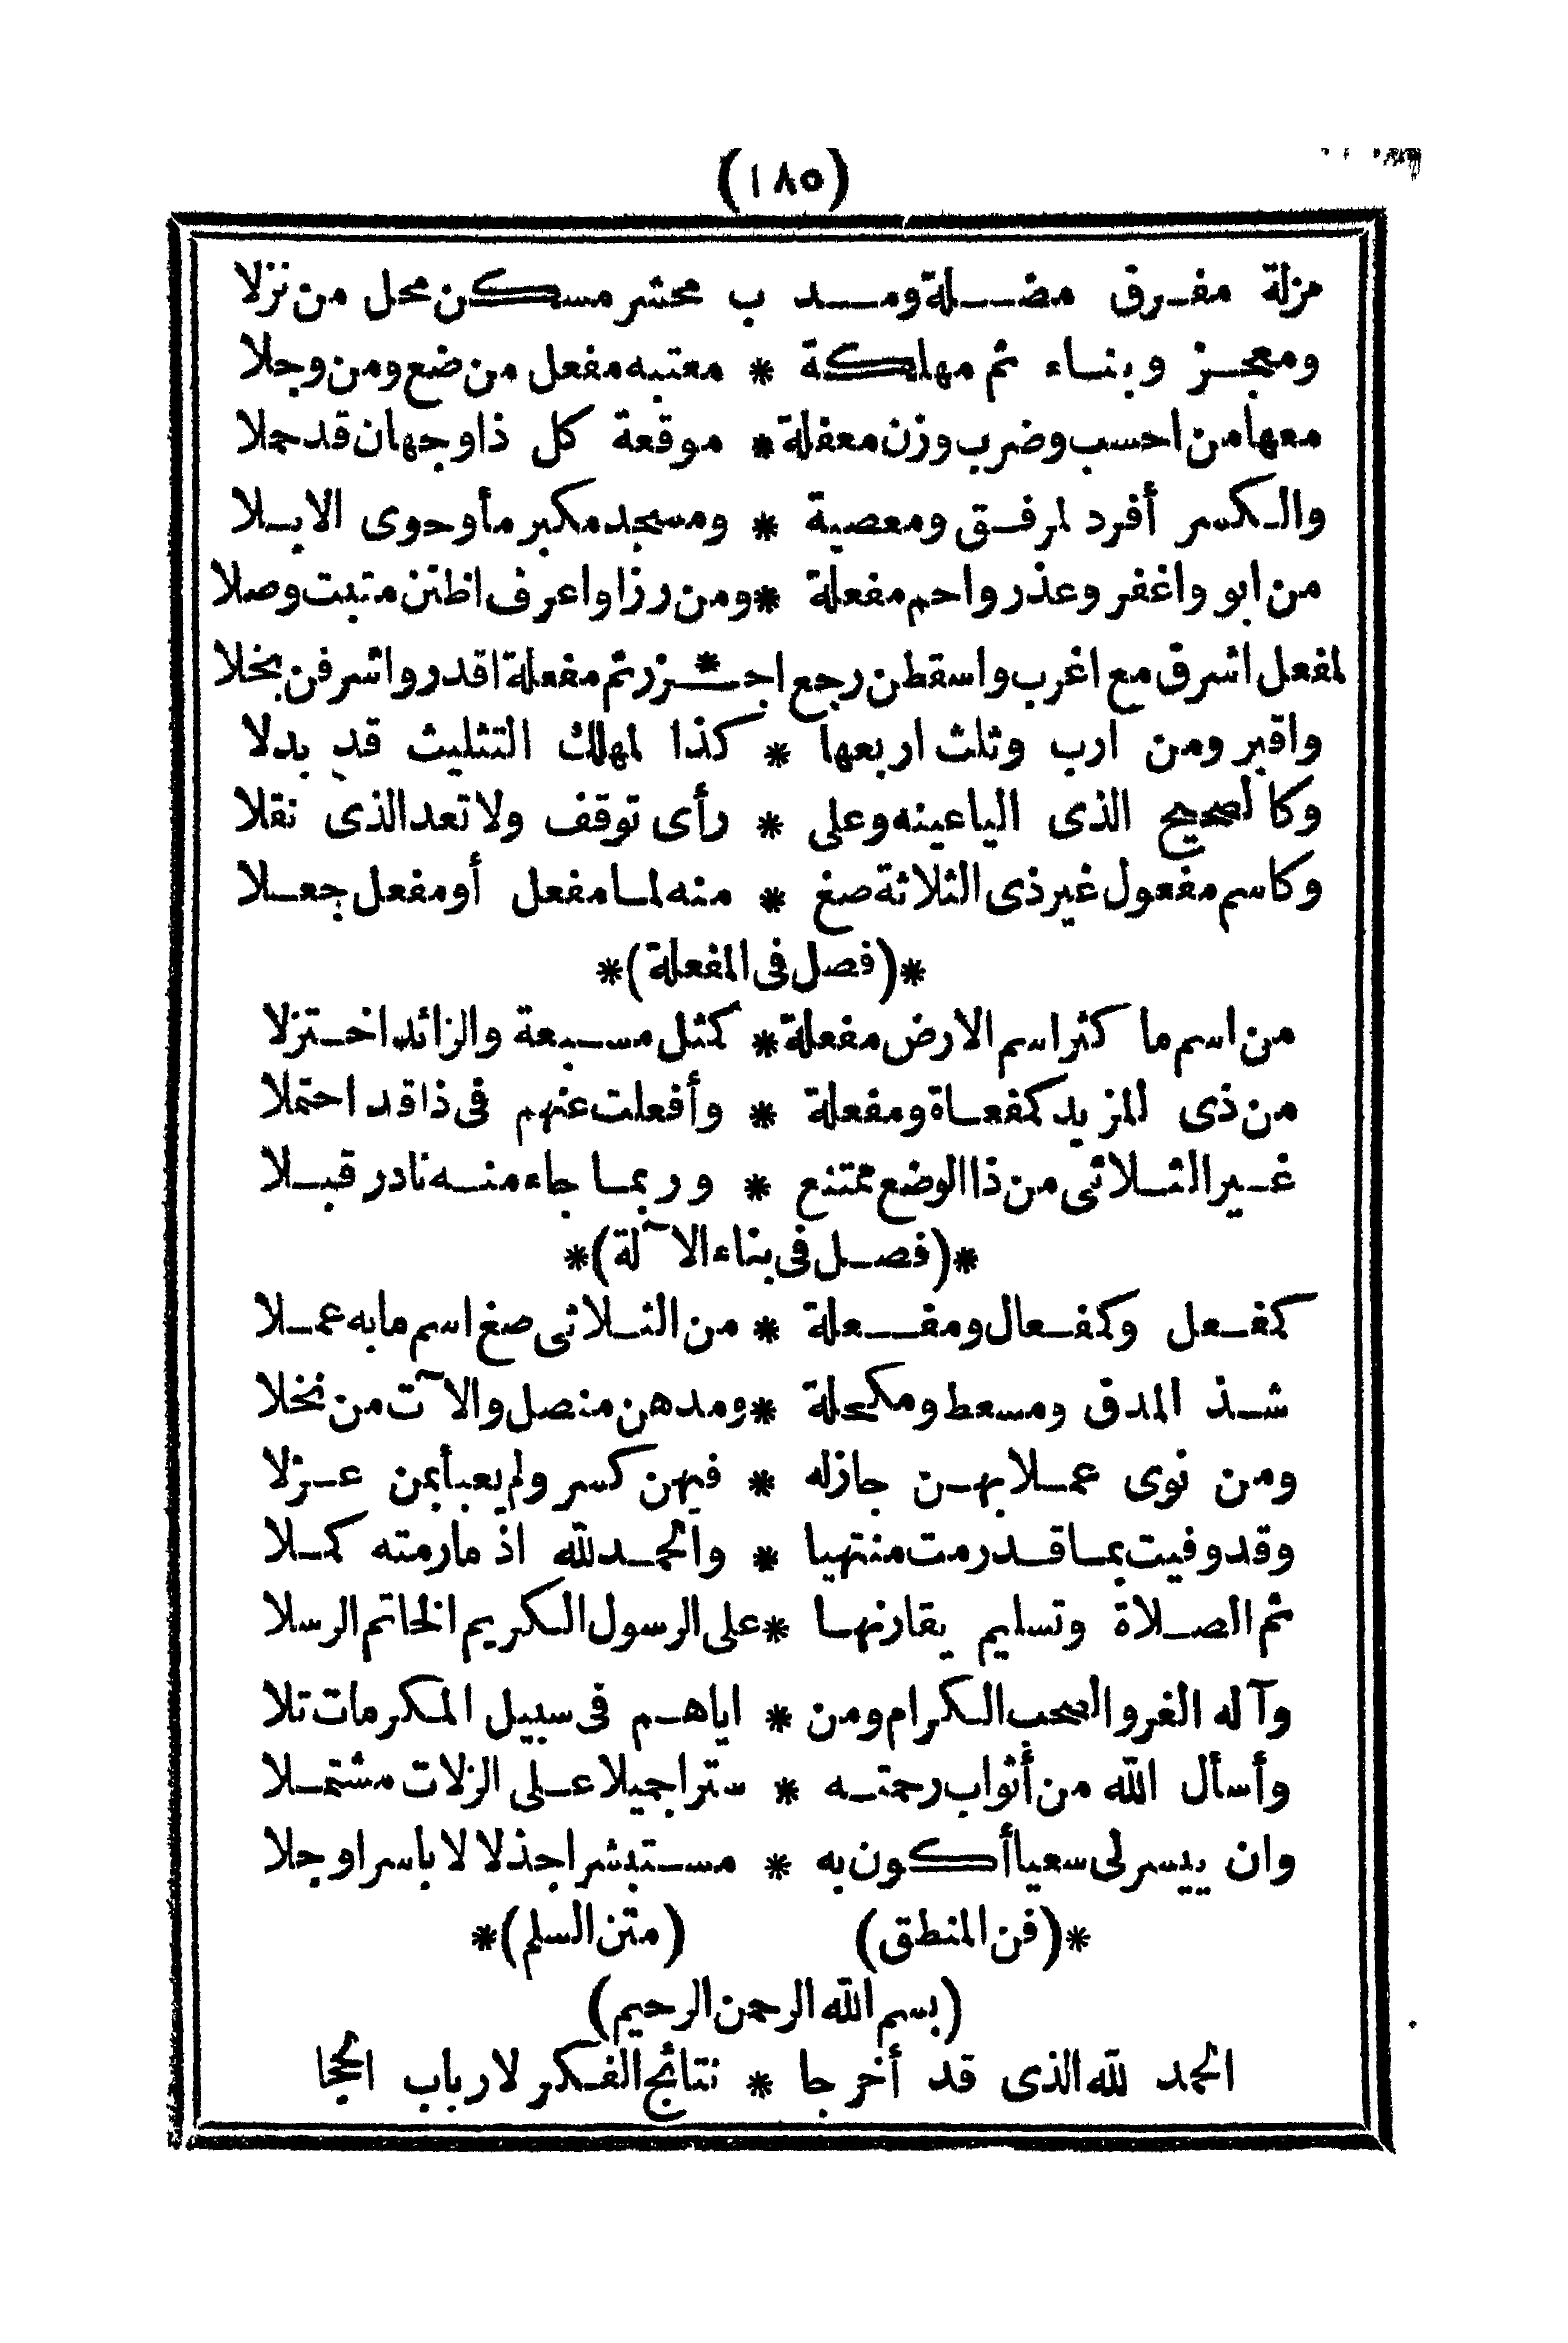 (١٨٥)
مزلة مفـرق مضـــلة ومـــد ب محشر مسكن محل من نزلا
ومعجـز وبنـاء ثم مهلكة * معتبه مفعل من ضع ومن وجلا
معها من احسب وضرب وزن معفلة * موقعة كل ذا وجهان قد حملا
والـكسر أفرد لمرفـق ومعصية * ومسجد مكبر مأو حوى الابـلا
من ابو واغفر وعذر واحم مفعلة * ومن رزا واعرف اظنن منبت وصلا
لمفعل اشرق مع اغرب واسقطن رجع اجـزر * ثم مفعلة اقدر واشرفن بخلا
واقبر ومن ارب وثلث اربعها * كذا لمهلك التثليث قد بدلا
وكالصحيح الذى الياعينه وعلى * رأى توقف ولا تعد الذى نقلا
وكاسم مفعول غير ذى الثلاثة صغ * منه لمـا مفعل أو مفعل جعـلا
*(فصل فى المفعلة)*
من اسم ما كثر اسم الارض مفعلة * كمثل مسـبعة والزائد اخـتزلا
من ذى المزيد كمفعـاة ومفعلة * وأفعلت عنهم فى ذا قد احتملا
غـير الثـلاثى من ذا الوضع ممتنع * وربمـا جاء منـه نادر قبـلا
*(فصـل فى بناء الآلة)*
كمفـعل وكمفـعال ومفــعلة * من الثـلاثى صغ اسم مابه عمـلا
شـذ المدق ومسعط ومكحلة * ومدهن منصل والآت من نخلا
ومن نوى عمـلا بهـن جازله * فيهن كسر ولم يعبأ بمن عـزلا
وقد وفيت بمـا قـد رمت منتهيا * والحمـد لله اذ مارمته كمـلا
ثم الصـلاة وتسليم يقارنهـا * على الرسول الـكريم الخاتم الرسلا
وآله الغر والصحب الـكرام ومن * اياهـم فى سبيل المـكرمات تلا
وأسأل الله من أثواب رحمتـه * ستراجميلا عـلى الزلات مشتمـلا
وان ييسر لى سعيا أكون به * مسـتبشرا جذلا لا باسرا وجلا
*(فن المنطق) (متن السلم)*
(بسم الله الرحمن الرحيم)
الحمد لله الذى قد أخرجا * نتائج الفـكر لارباب الحجا